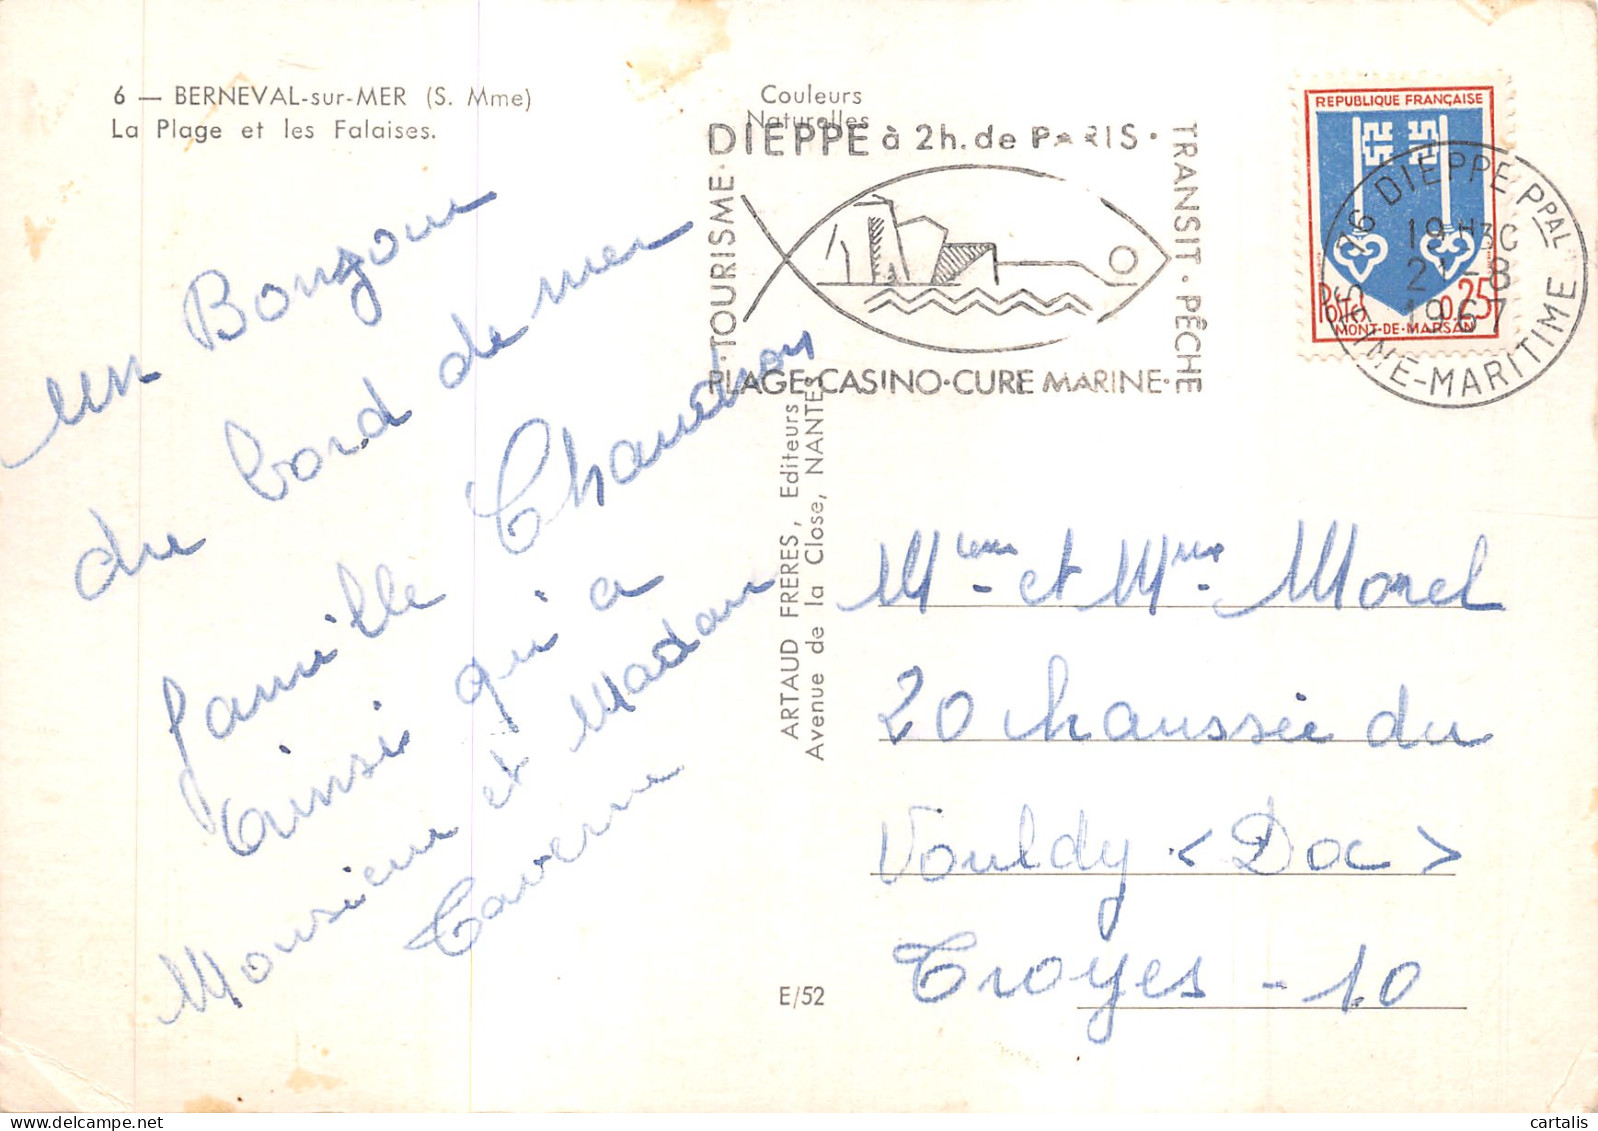 6 — BERNEVAL-sur-MER (S. Mme)
La Plage et les Falaises.
Couleurs
Naturelles
DIEPPE à 2h. de PARIS ·
TOURISME ·
TRANSIT · PÊCHE
PLAGE · CASINO · CURE MARINE ·
REPUBLIQUE FRANÇAISE
POSTES 0,25
MONT-DE-MARSAN
76 DIEPPE PPAL
19 H30
21-8
1967
SEINE-MARITIME
un Bonjour
du bord de mer
famille Chaudron
ainsi qui a
Monsieur et Madam
Taverne
ARTAUD FRERES, Editeurs
Avenue de la Close, NANTES
E/52
Mieur et Mme Morel
20 chaussée du
Vouldy < Doc >
Troyes - 10
cartalis